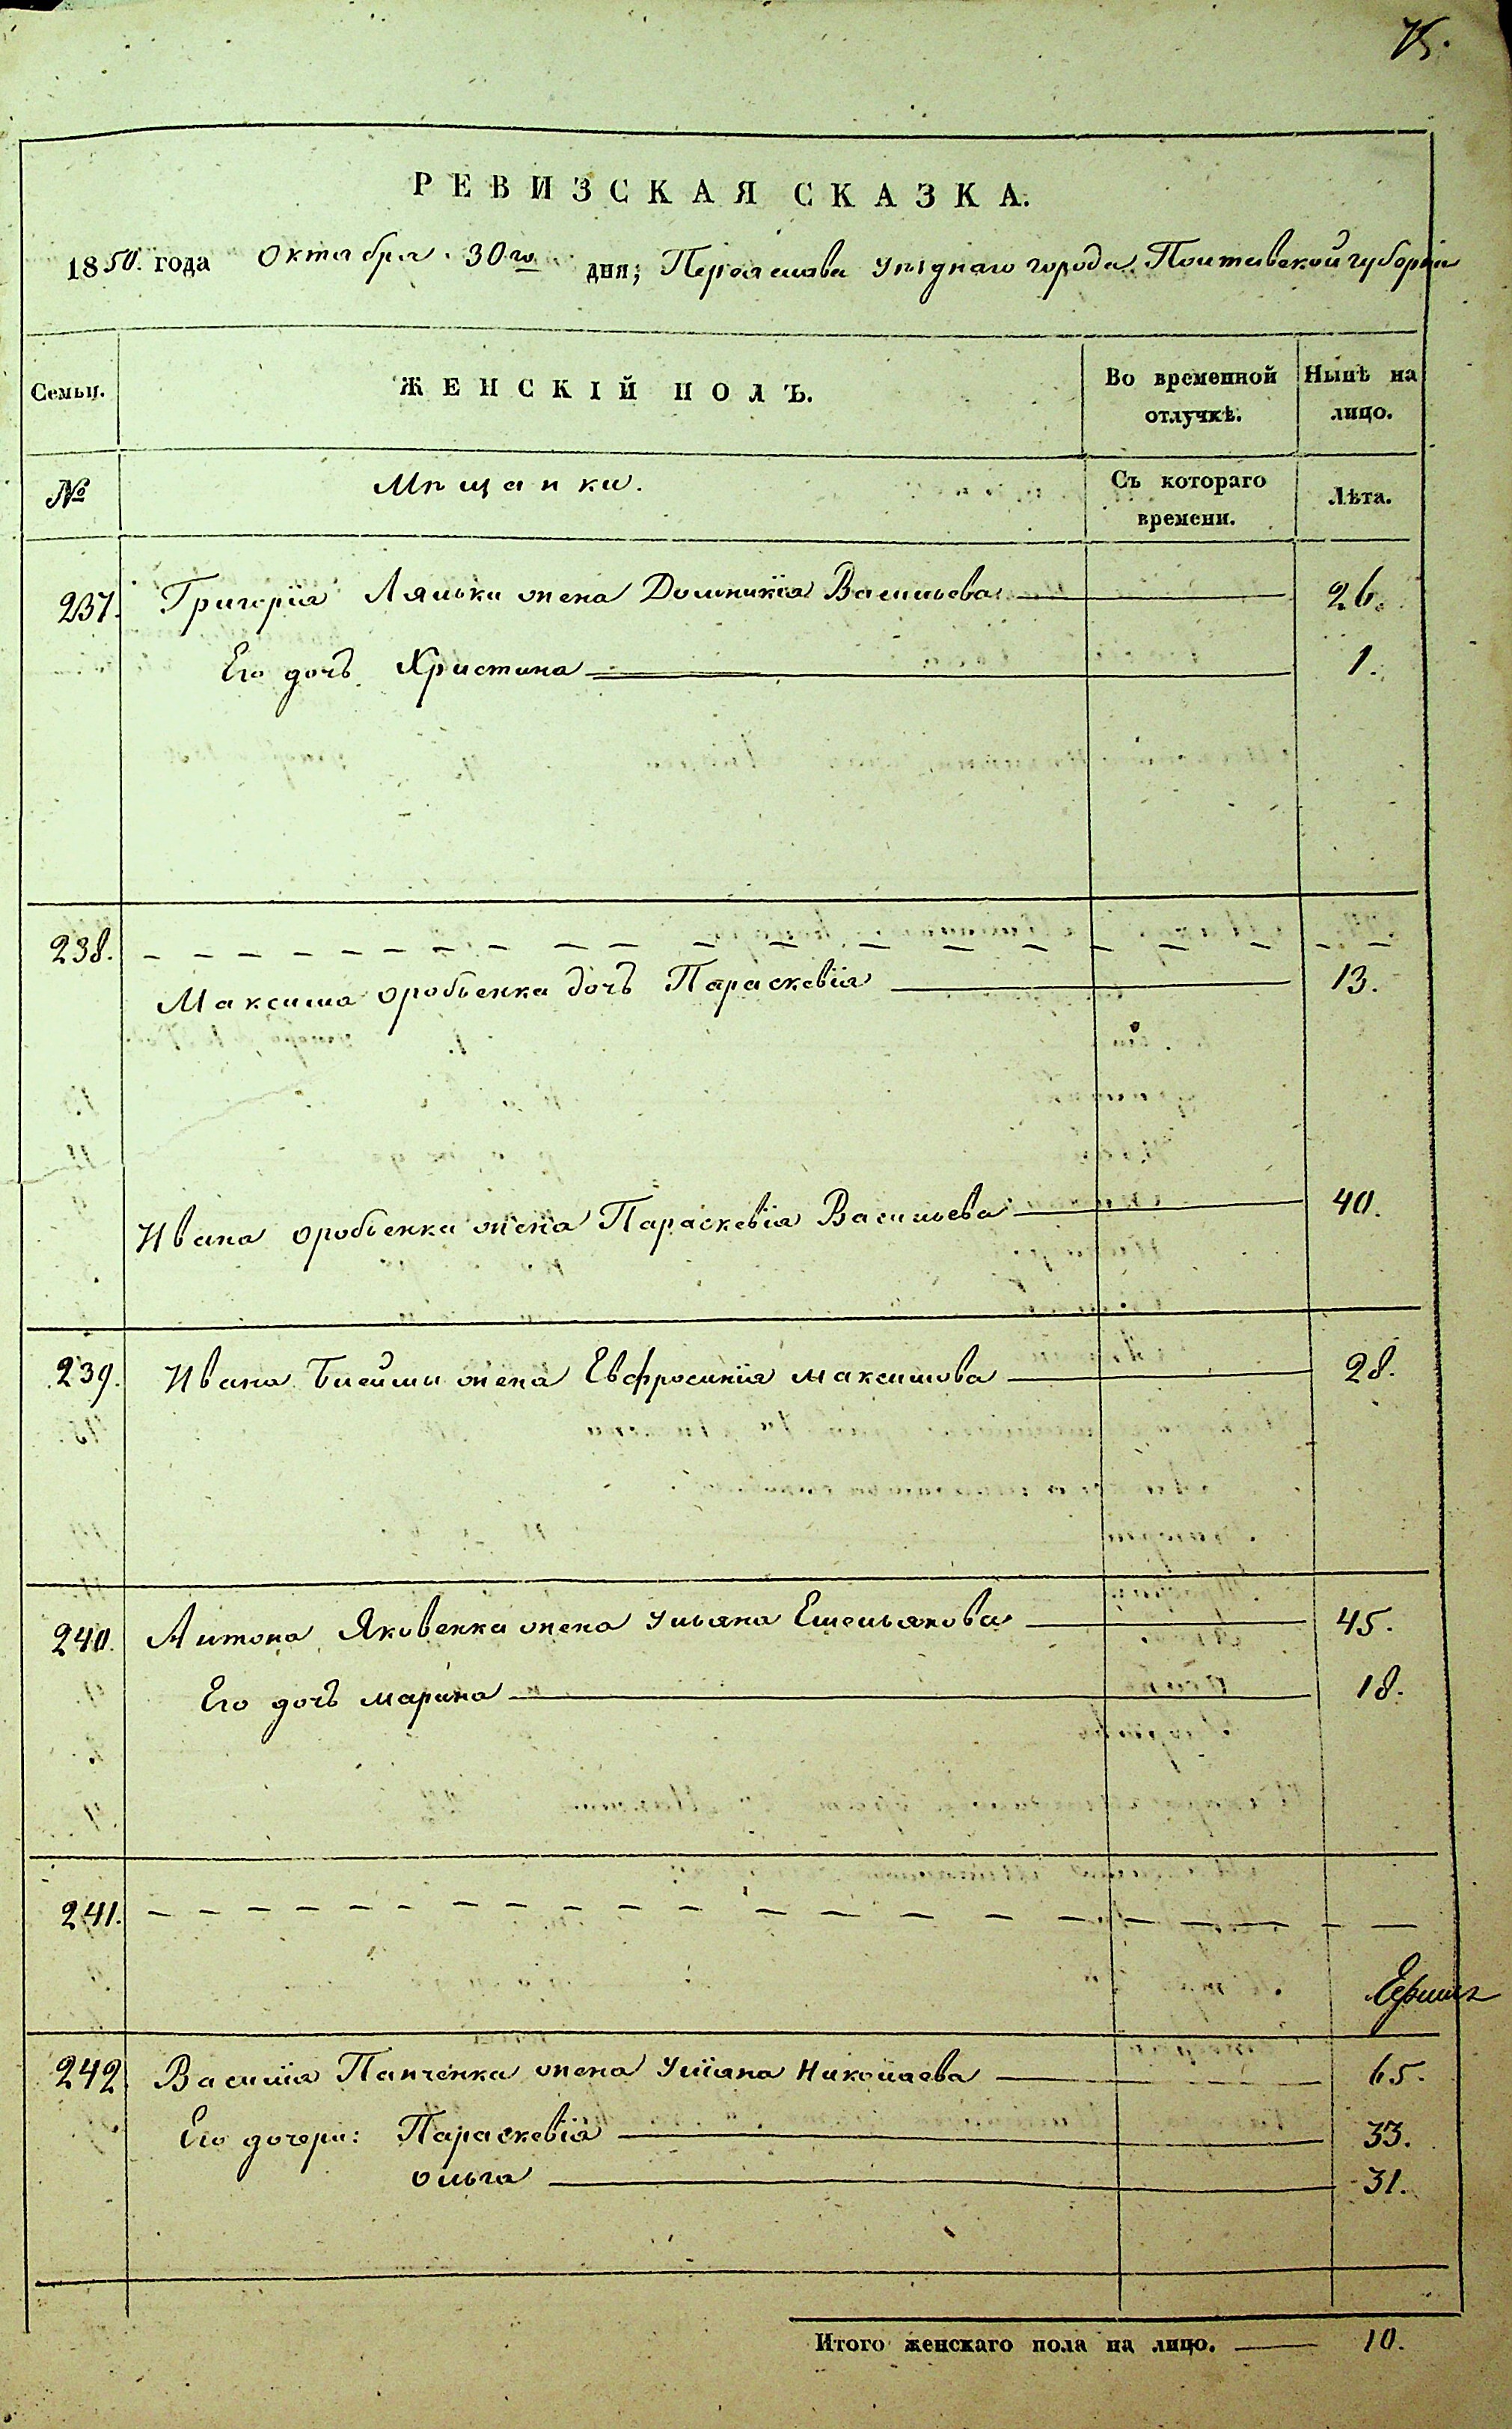 75.
РЕВИЗСКАЯ СКАЗКА.
1850. года Октября 30го дня; Переяслова уѣзднаго города Полтавской губерніи
Семьи. ЖЕНСКІЙ ПОЛЪ. Во временной отлучкѣ. Нынѣ на лицо.
№ Мѣщанки. Съ котораго времени. Лѣта.
237. Григорія Ляльки жена Домникія Васильева 26.
Его дочь Христина 1.
238.
Максима Оробьенка дочь Параскевія 13.
Ивана Оробьенка жена Параскевія Васильева 40.
239. Ивана жена Евфросинія Максимова 28.
240. Антона Яковенка жена Ульяна Емельянова 45.
Его дочь Марина 18.
241.
242. Василія Панченка жена Уліана Николаева 65.
Его дочери: Параскевія 33.
Ольга 31.
Итого женскаго пола на лицо. 10.